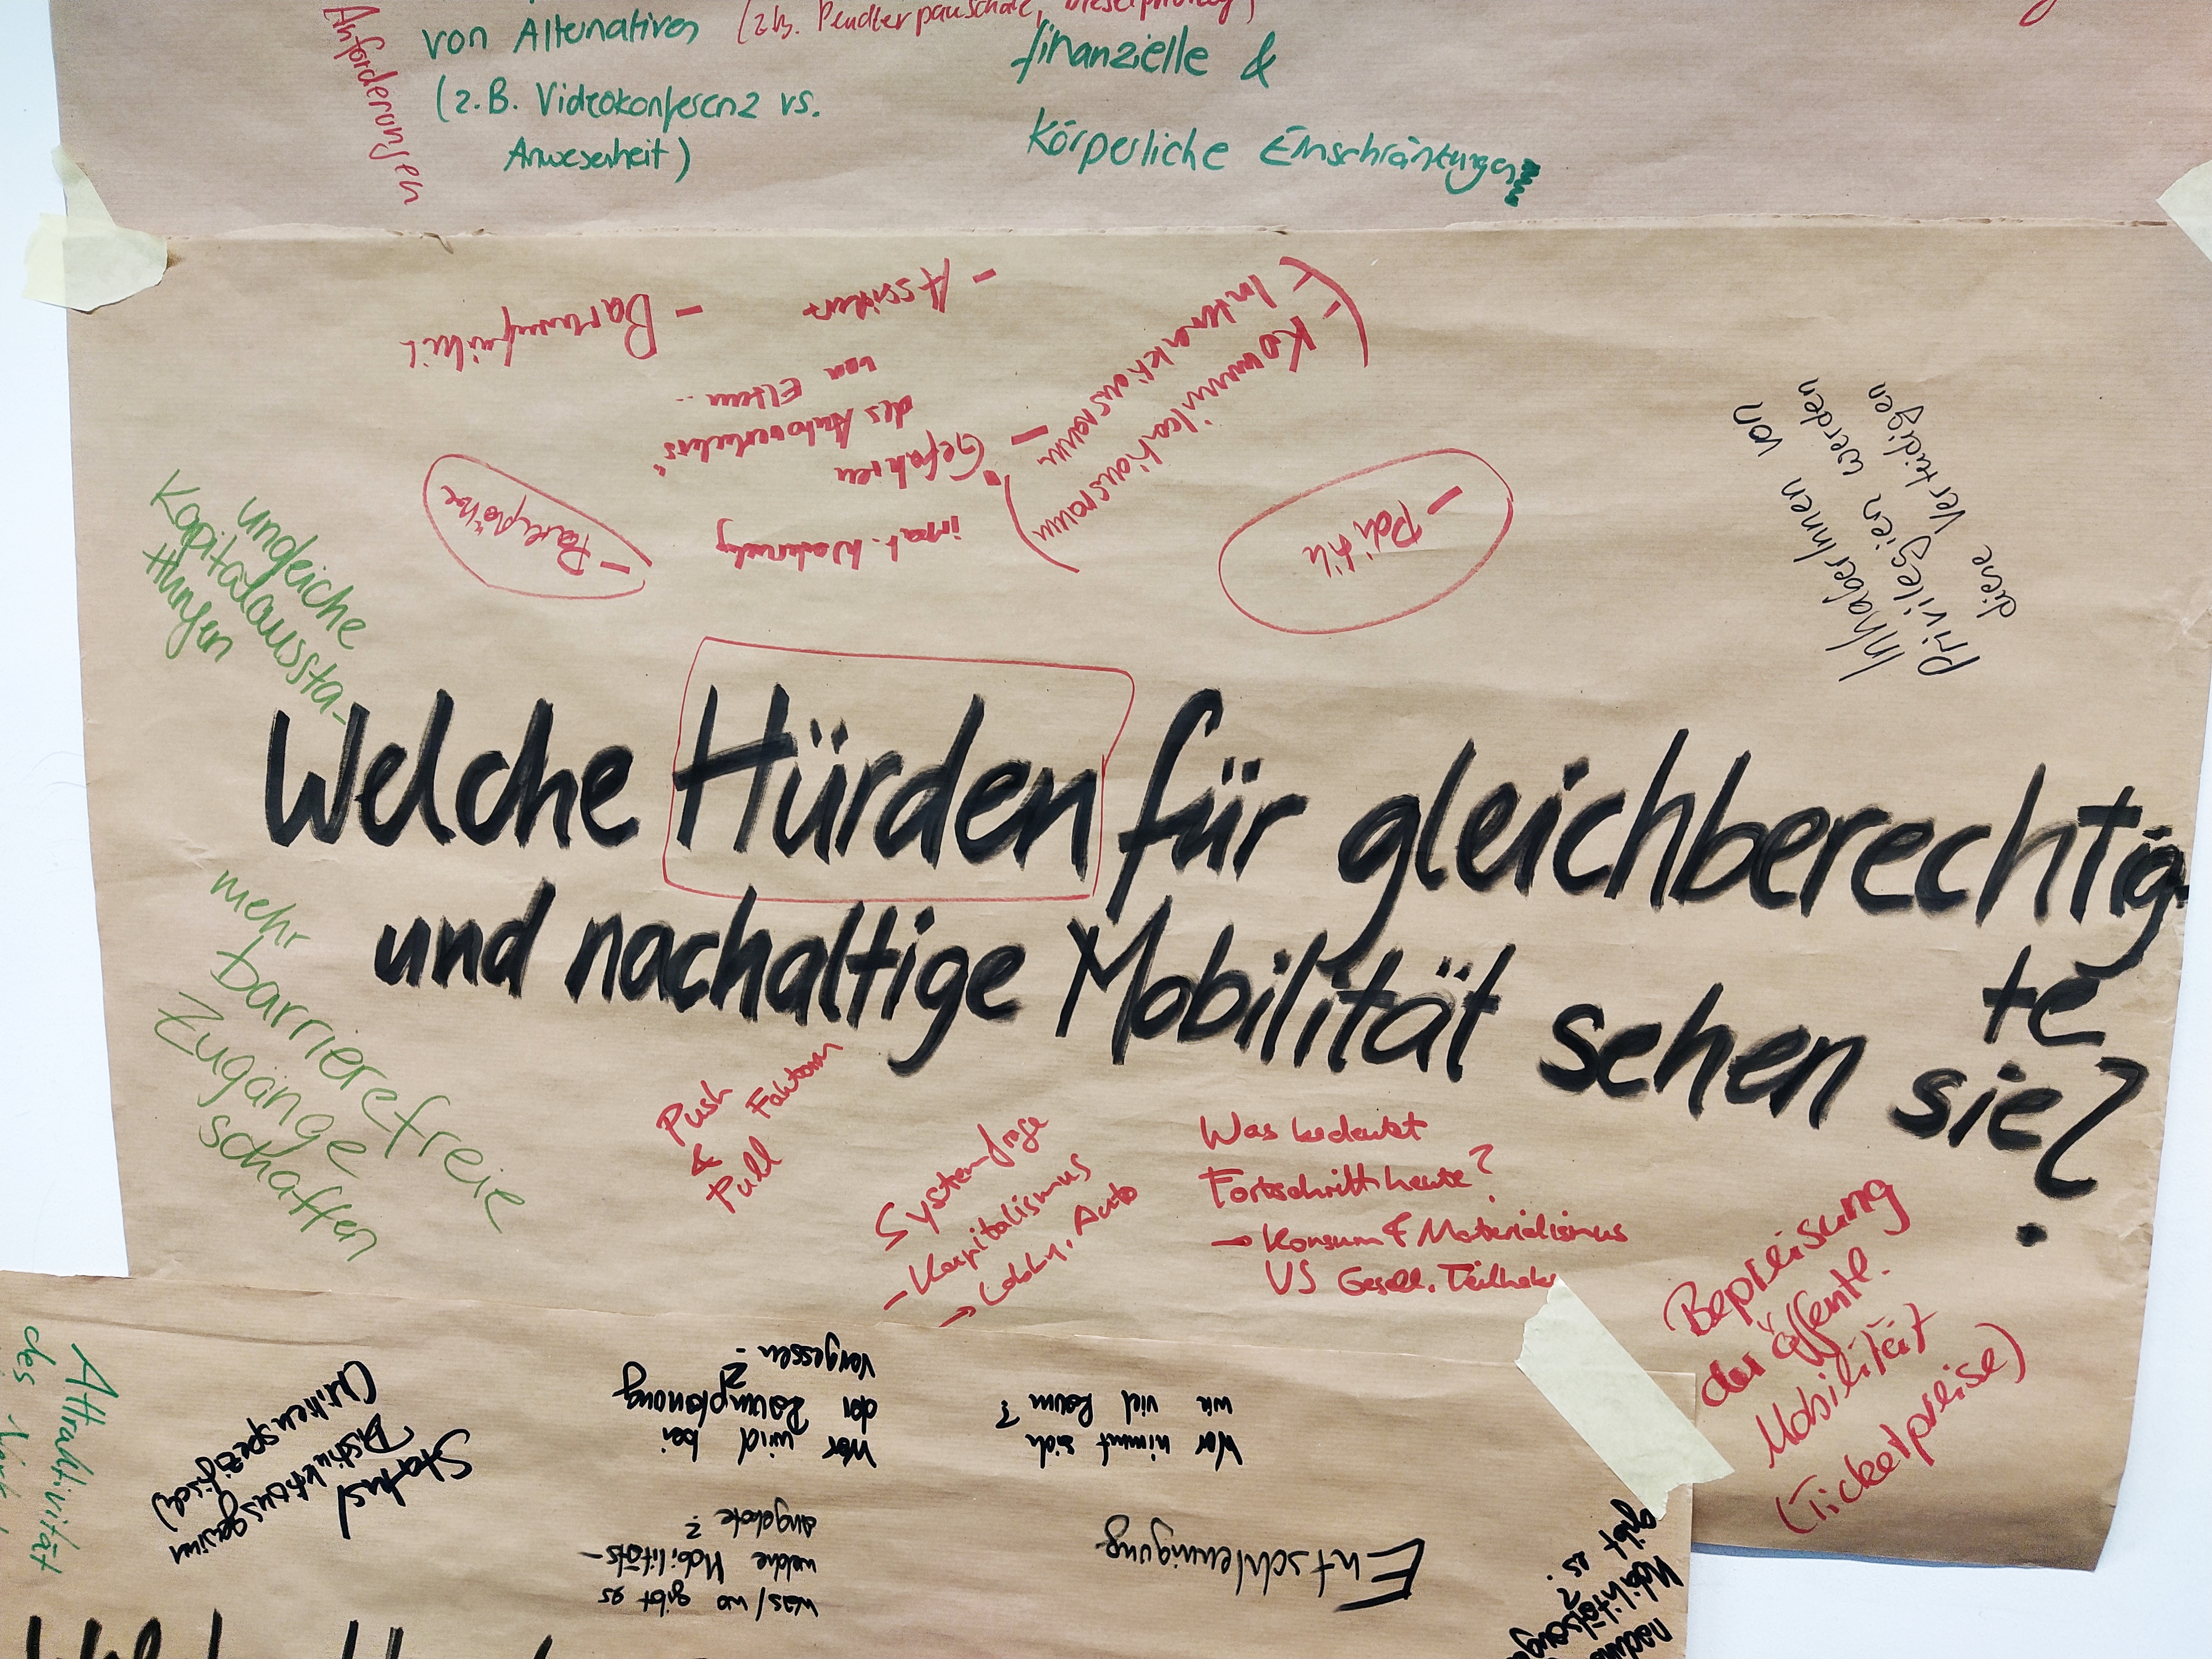 Anforderungen
von Alternativen
(z.B. Pendlerpauschale,
(z.B. Videokonferenz vs.
Anwesenheit)
finanzielle &
körperliche Einschränkungen
- Politik
(- Interaktionsraum
- Kommunikationsraum)
- Assistenz
- Gefahren
des Autoverkehrs"
von Eltern...
- Parkplätze
InhaberInnen von
Privilegien werden
diese verteidigen
ungleiche
Kapitalaussta-
ttungen
Welche Hürden für gleichberechtig-
te
und nachaltige Mobilität sehen sie?
mehr
barrierefreie
Zugänge
schaffen
Push
& Faktoren
Pull
Systemfrage
- Kapitalismus
→ Lobby, Auto
Was bedeutet
Fortschritt heute?
→ Konsum & Materialismus
VS Gesell. Teilhabe
Bepreisung
der öffentl.
Mobilität
(Ticketpreise)
Attraktivität
des
Status/
Distinktionsgewinn
Entschleunigung
was/wo gibt es
welche Mobilitäts-
angebote?
Wer nimmt sich
wie viel Raum?
Wer wird bei
der Raumplanung
vergessen?
gibt es?